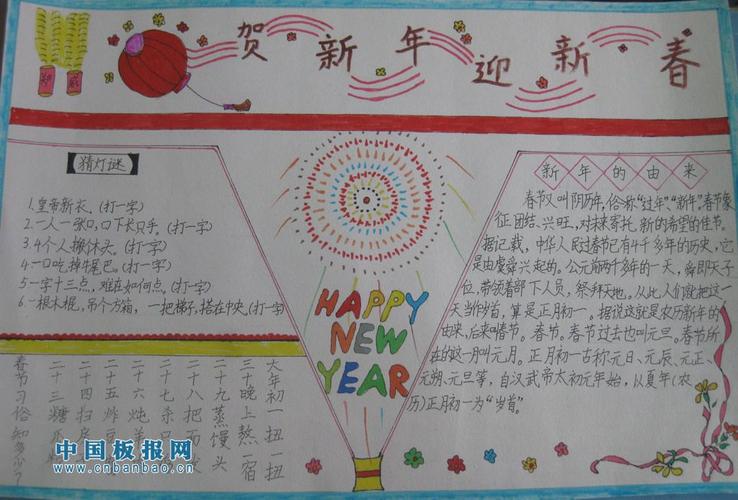 贺新年迎新春
猜灯谜
1.皇帝新衣。(打一字)
2.一人一张口,口下长只手。(打一字)
3.4个人搬个木头。(打一字)
4.一口吃掉牛尾巴。(打一字)
5.一字十三点,难在如何点。(打一字)
6.一根木棍,吊个方箱,一把梯子,搭在中央。(打一字)
HAPPY
NEW
YEAR
新年的由来
春节又叫阴历年,俗称“过年”、“新年”。春节象
征团结、兴旺,对未来寄托新的希望的佳节。
据记载,中华人民过春节已有4千多年的历史,它
是由虞舜兴起的。公元前两千多年的一天,舜即天子
位,带领着部下人员,祭拜天地。从此,人们就把这一
天当作岁首,算是正月初一。据说这就是农历新年的
由来,后来叫春节。春节。春节过去也叫元旦。春节所
在的这一月叫元月。正月初一古称元日、元辰、元正、
元朔、元旦等,自汉武帝太初元年始,以夏年(农
历)正月初一为“岁首”。
大年初一扭一扭
三十晚上熬一宿
二十九蒸馒头
二十八把面发
二十七杀
二十六炖
二十五炸豆
二十四扫房
二十三糖
春节习俗知多少?
中国板报网
www.cnbanbao.cn